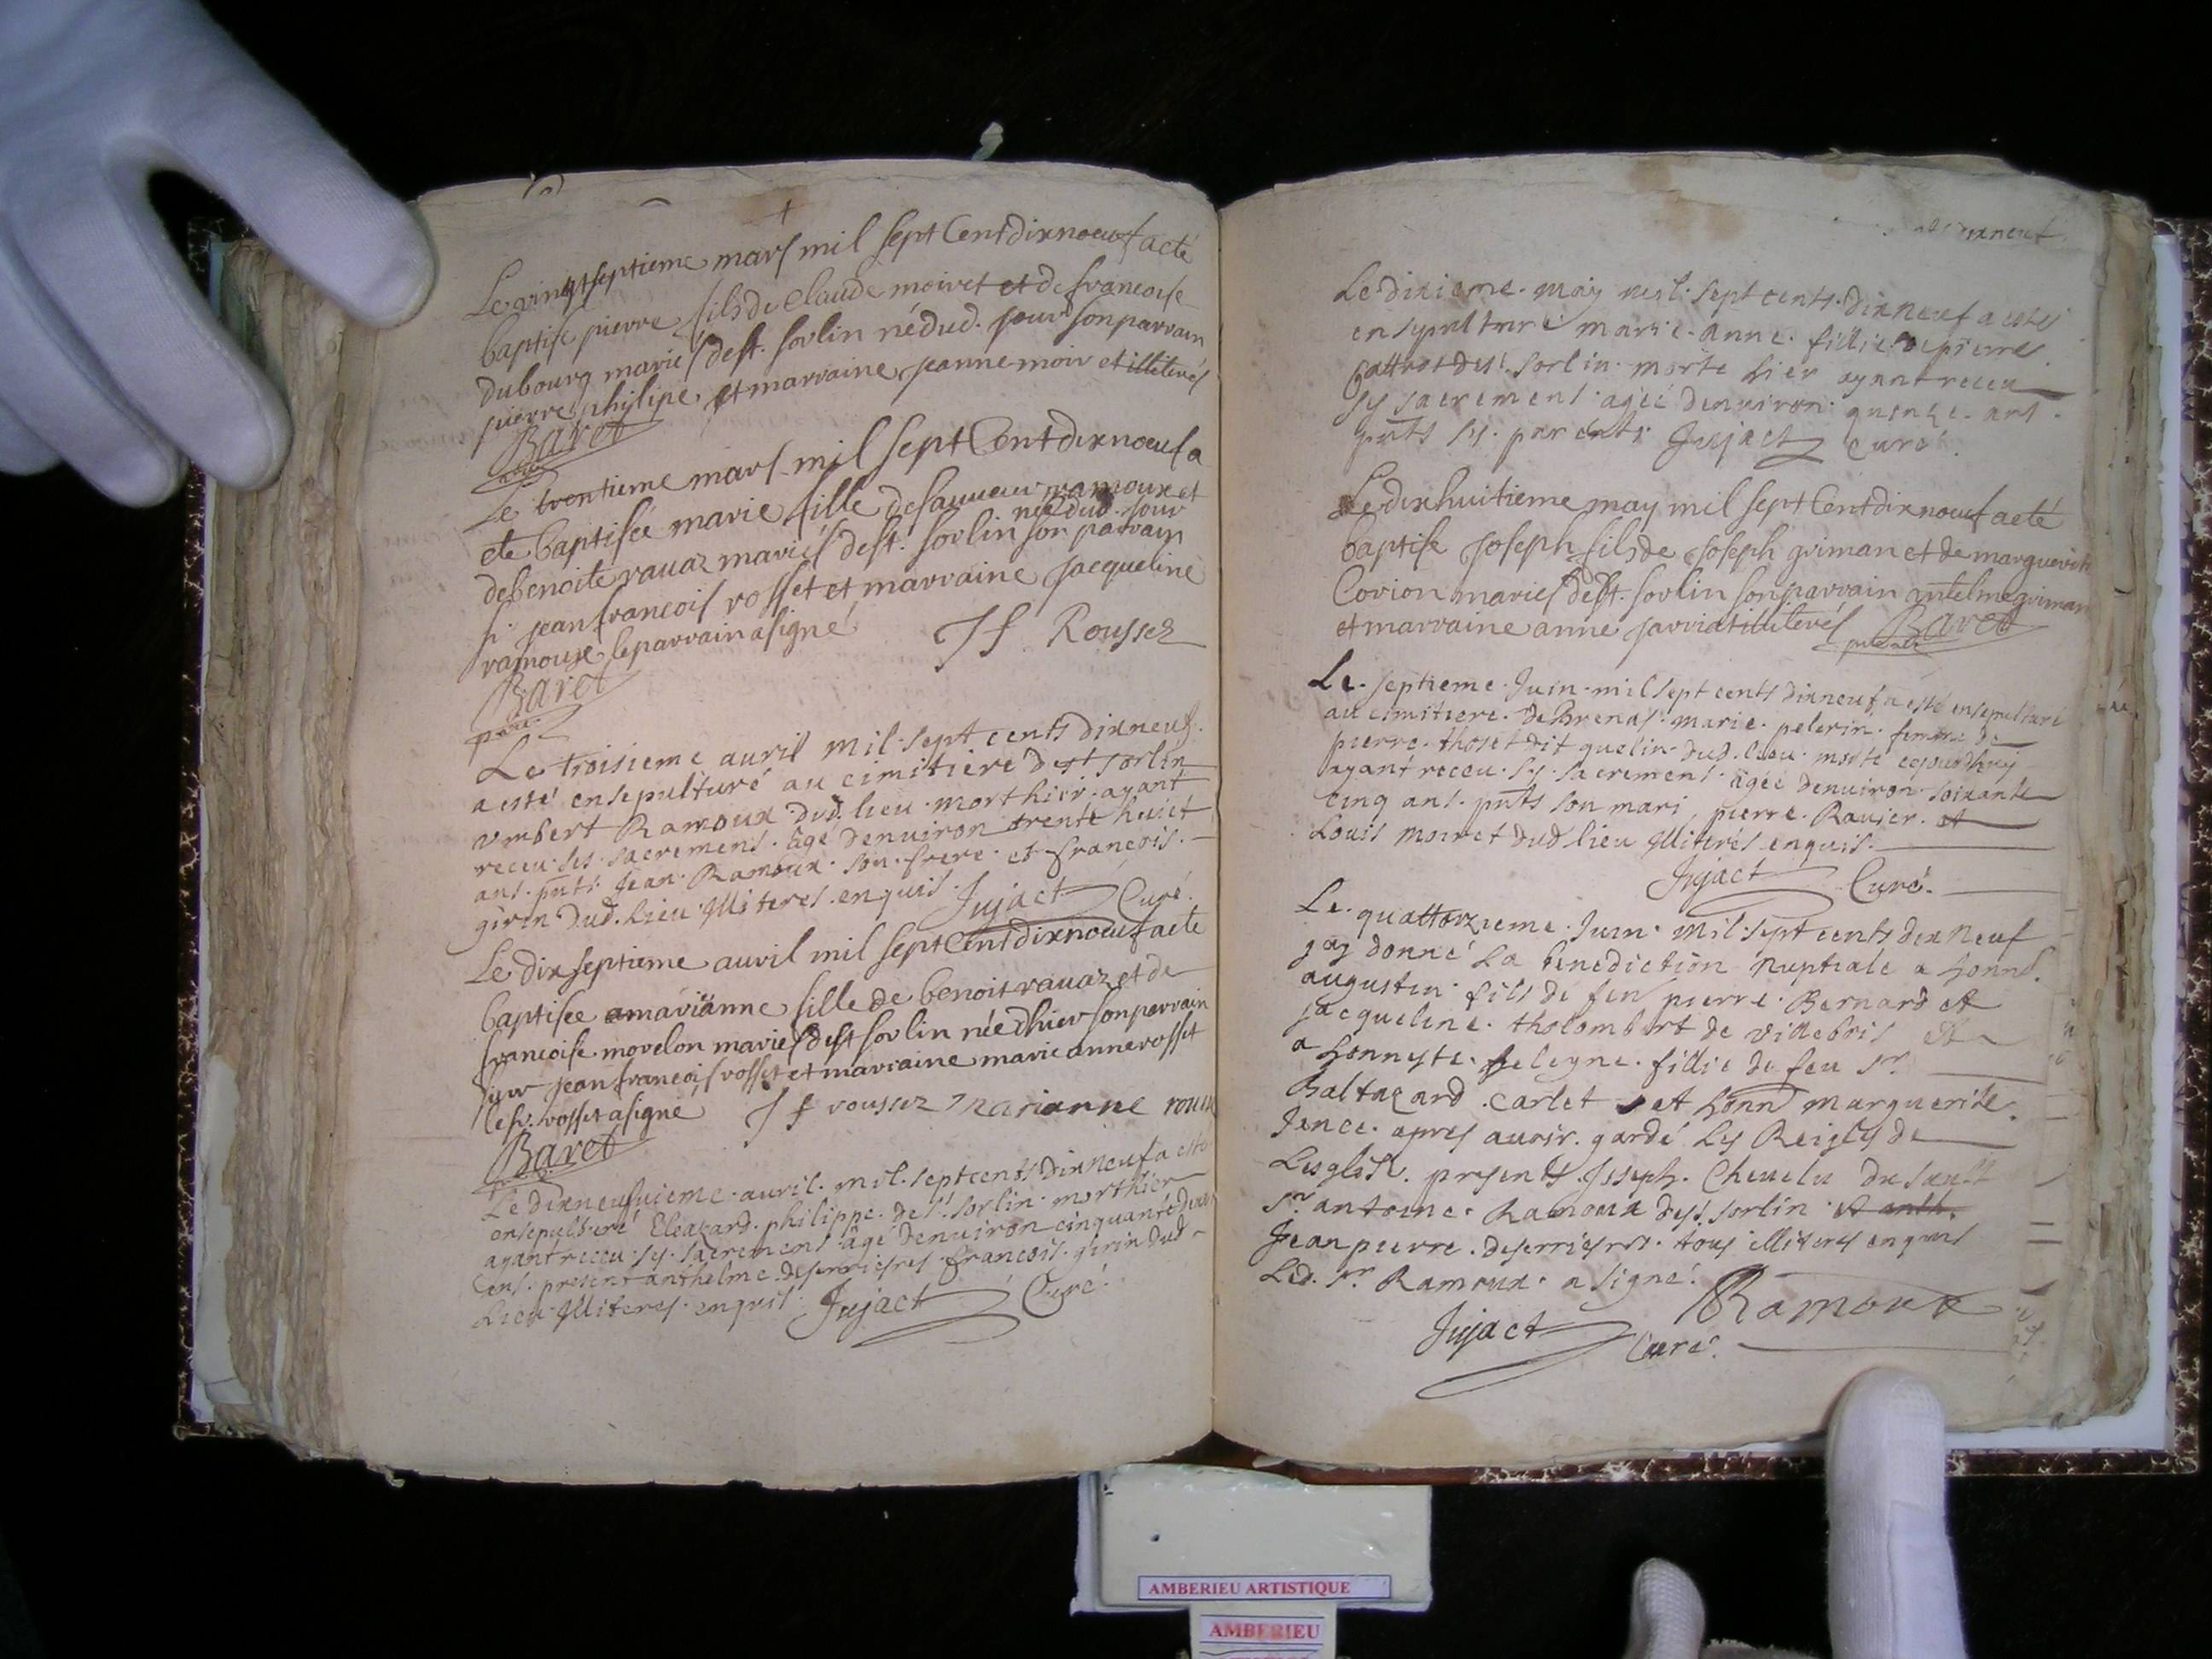 Le vingtseptieme mars mil sept Cent dixnoeuf a eté
baptisé pierre fils de Claude moiret et de francoise
dubourg mariés de st. sorlin né dud. jour son parrain
pierre philipe et marraine jeanne moiret illiterés
Baret
Le trentieme mars mil sept Cent dixnoeuf a
ete baptisée marie fille de sauueur ramoux et
née dud. jour
de benoite rauaz mariés de st. sorlin son parrain
sr. jean francois rosset et marraine jacqueline
ramoux le parrain a signé Jf Rousset
Baret
Le troisieme auril mil sept cents dixneuf
a esté ensepulturé au cimitiere de st sorlin
vmbert Ramoux dud. lieu mort hier ayant
receu ses sacremens agé denuiron trente huict
ans pnts Jean Ramoux son frere et francois
girin dud. Lieu Illiteres enquis Jujact Curé
Le dixseptieme auril mil sept Cent dixnoeuf a ete
baptisee marianne fille de benoit rauaz et de
francoise morelon mariés de st sorlin née dhier son parrain
sieur jean francois rosset et marraine marie anne rosset
le sr. rosset a signé Jf rousset Marianne
Baret
Le dixneufuieme auril mil sept cents dixneuf a esté
ensepulturé Eleazard philippe de st. sorlin mort hier
ayant receu ses sacremens agé denuiron cinquante deux
ans present anthelme deserriesres francois girin dud
Lieu Illiteres enquis Jujact Curé
dixneuf
Le dixieme may mil sept cents dixneuf a esté
ensepulturé marie anne fillie de pierre
de st. sorlin morte hier ayant receu
ses sacremens agée denuiron quinze ans
pnts ses parents Jujact curé
Le dixhuitieme may mil sept Cent dixnoeuf a eté
baptisé joseph fils de joseph griman et de marguerite
Corion mariés de st. sorlin son parrain antelme griman
et marraine anne jarriat illiterés Baret
Le septieme Juin mil sept cents dixneuf a esté ensepulturé
au cimitiere de Brenas marie pelerin femme de
pierre thoset dit quelin dud. lieu morte ceiourdhuy
ayant receu ses sacremens agée denuiron soixante
cinq ans pnts son mari pierre Rauier et
Louis moiret dud lieu Illiterés enquis
Jujact Curé
Le quattorzieme Juin mil sept cents dix neuf
jay donné La benediction nuptiale a honne.
augustin fils de feu pierre Bernard et
jacqueline tholombert de villebois et
a honneste fillie de feu sr.
Baltazard carlet et honn marguerite
Jance apres auoir gardé Les Reigles de
Lesglise presents Joseph Cheuelu du sault
sr. antoine Ramoux de st. sorlin et anth.
Jean pierre deserriesres tous illiteres enquis
Led. sr. Ramoux a signé Ramoux
Jujact Curé
AMBERIEU ARTISTIQUE
AMBERIEU